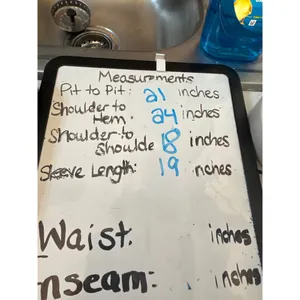 Measurments
Pit to Pit: 21 inches
Shoulder to
Hem: 24 inches
Shoulder to
Shoulde 18 inches
Sleeve Length: 19 inches
Waist: inches
nseam: inches